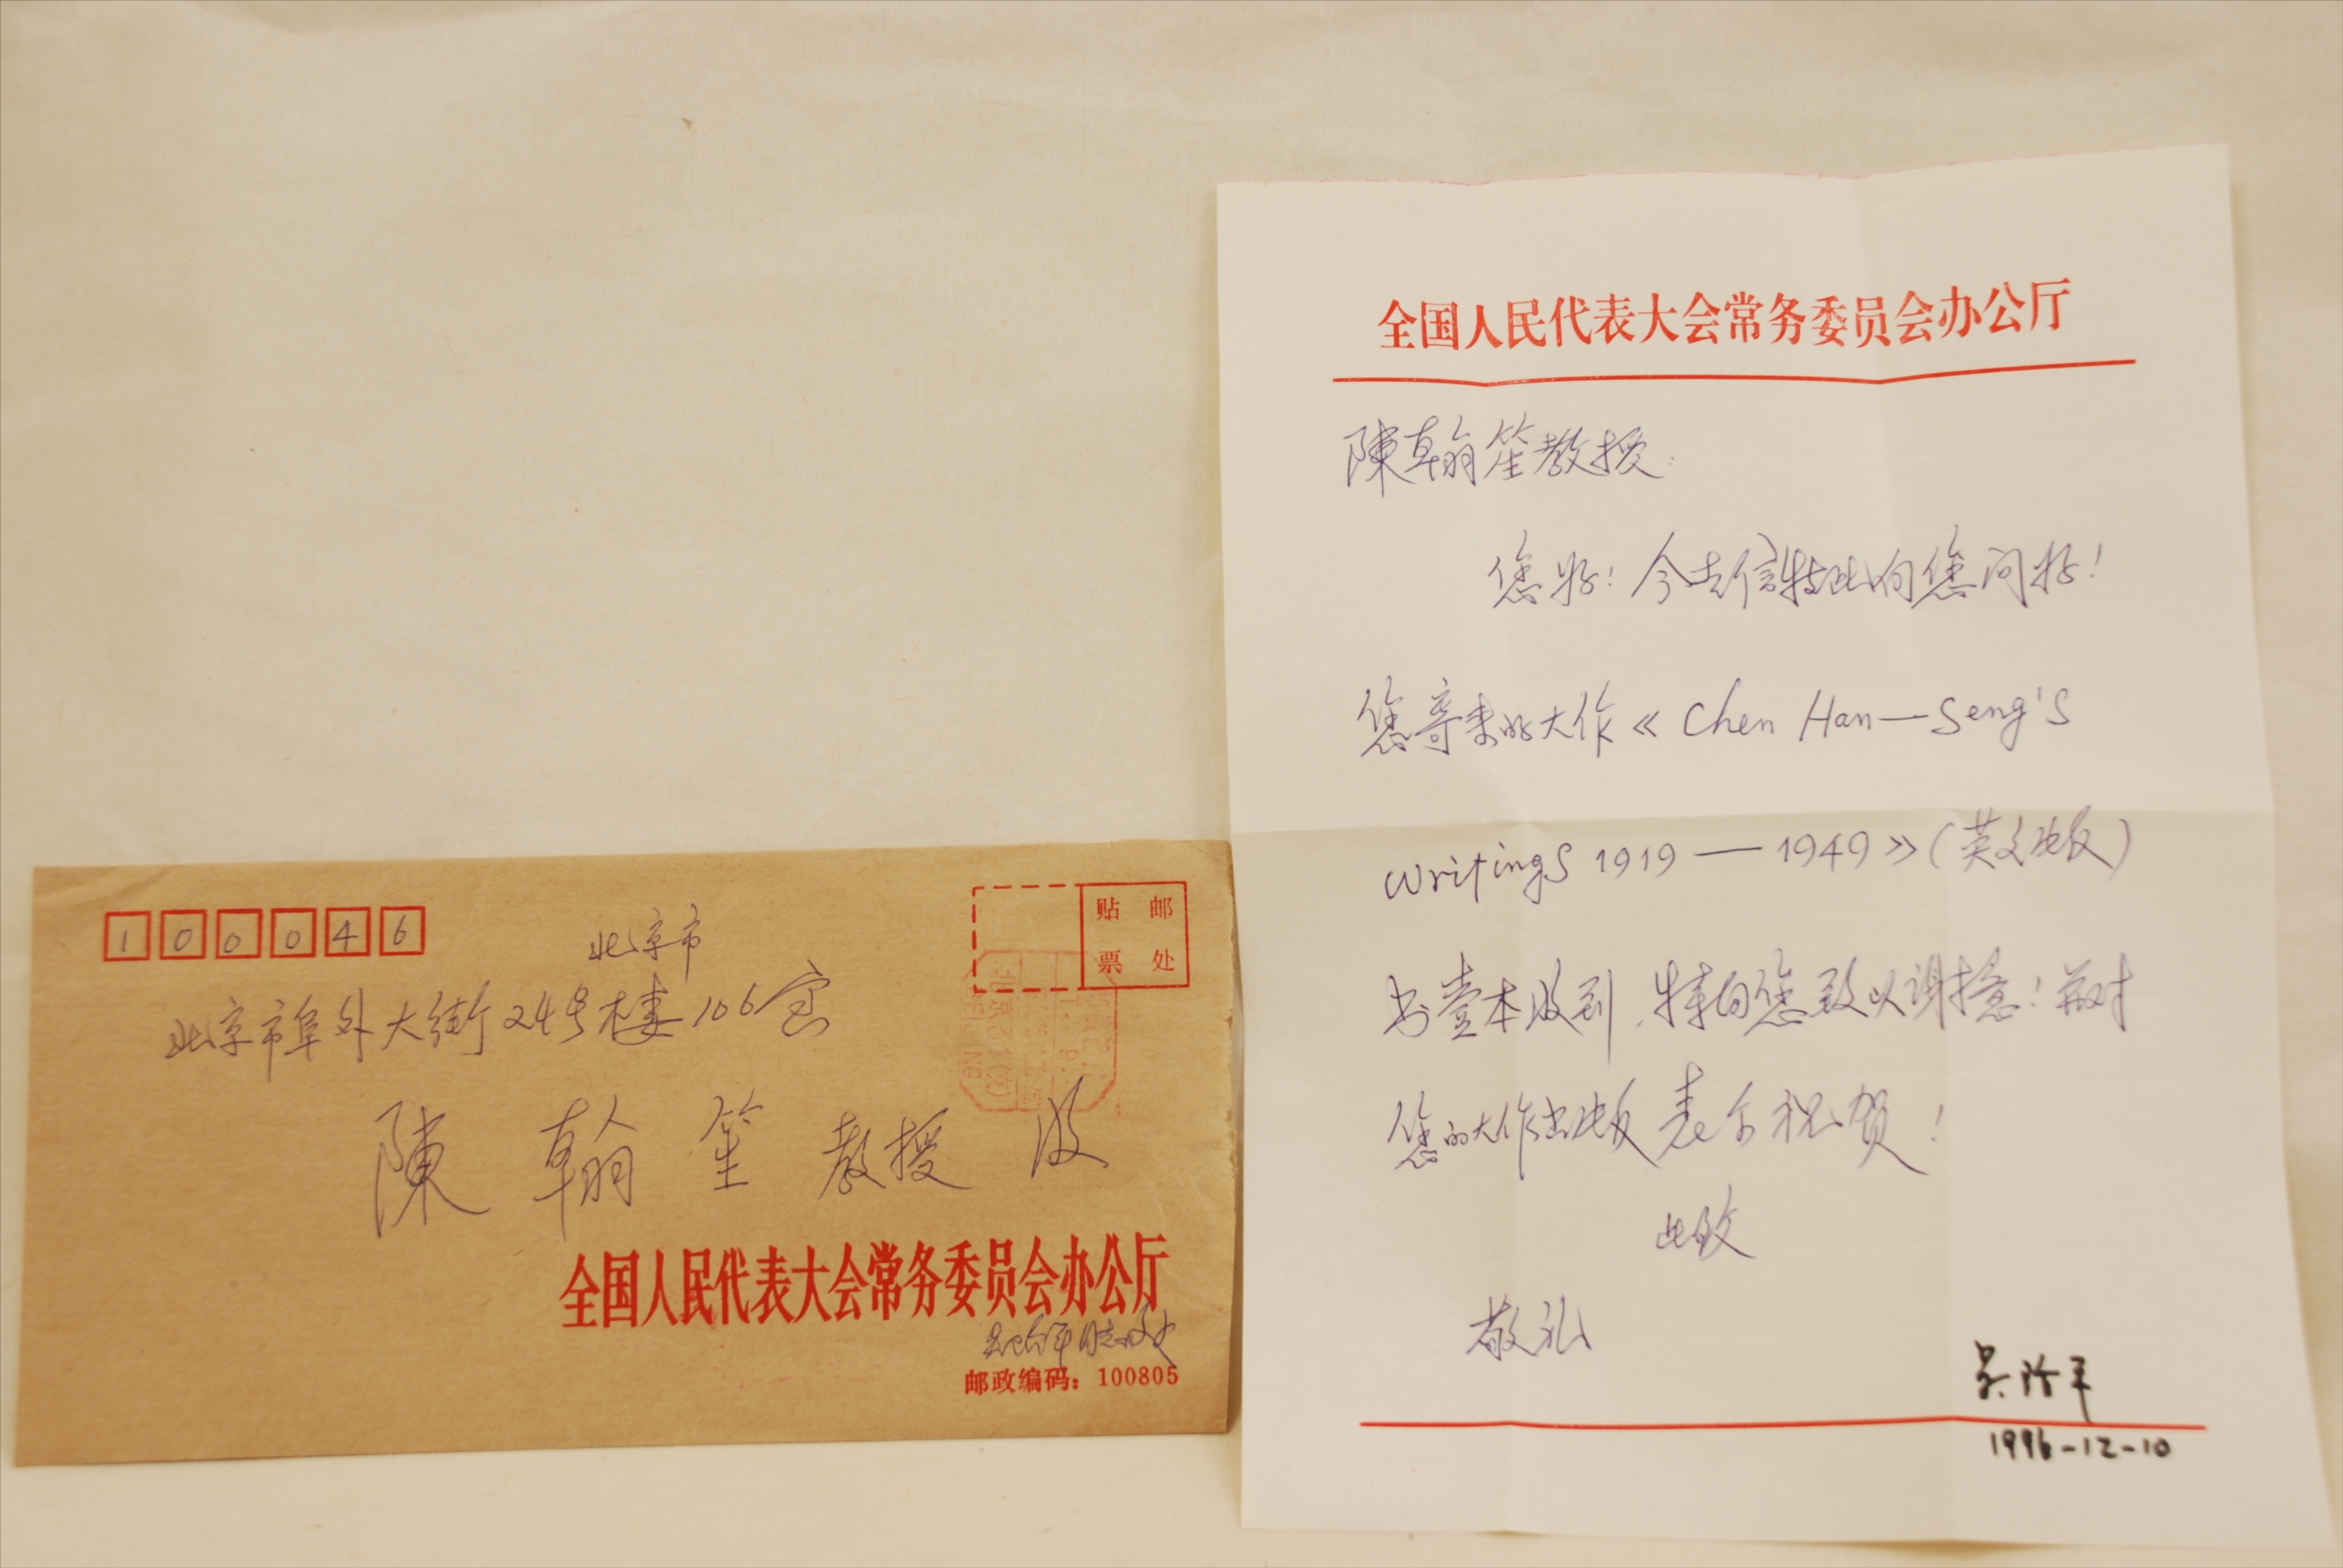 100046
北京市
北京市阜外大街24号楼106室
陳翰笙教授收
贴邮
票处
全国人民代表大会常务委员会办公厅
邮政编码：100805
全国人民代表大会常务委员会办公厅
陳翰笙教授：
您好！今去信特此向您问好！
您寄来的大作《Chen Han—Seng's
Writings 1919—1949》（英文版）
书壹本收到，特向您致以谢意！并对
您的大作出版表示祝贺！
此致
敬礼
吴阶平
1996-12-10